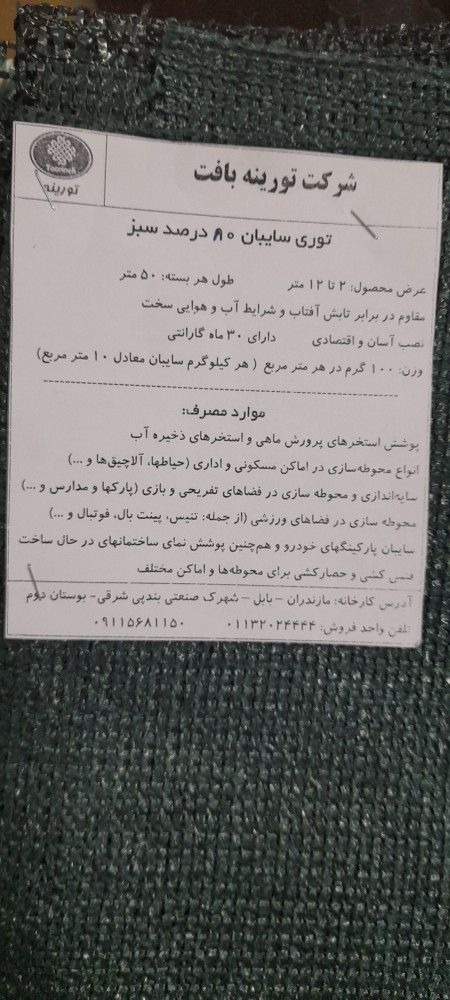 شرکت تورینه بافت
Tourineh
تورینه
توری سایبان ۸۰ درصد سبز
عرض محصول: ۲ تا ۱۲ متر طول هر بسته: ۵۰ متر
مقاوم در برابر تابش آفتاب و شرایط آب و هوایی سخت
نصب آسان و اقتصادی دارای ۳۰ ماه گارانتی
وزن: ۱۰۰ گرم در هر متر مربع ( هر کیلوگرم سایبان معادل ۱۰ متر مربع)
موارد مصرف:
پوشش استخرهای پرورش ماهی و استخرهای ذخیره آب
انواع محوطه‌سازی در اماکن مسکونی و اداری (حیاطها، آلاچیق‌ها و ...)
سایه‌اندازی و محوطه سازی در فضاهای تفریحی و بازی (پارکها و مدارس و ...)
محوطه سازی در فضاهای ورزشی (از جمله: تنیس، پینت بال، فوتبال و ...)
سایبان پارکینگهای خودرو و هم‌چنین پوشش نمای ساختمانهای در حال ساخت
فنس کشی و حصارکشی برای محوطه‌ها و اماکن مختلف
آدرس کارخانه: مازندران – بابل – شهرک صنعتی بندپی شرقی- بوستان دوم
تلفن واحد فروش: ۰۱۱۳۲۰۲۴۴۴۴ ۰۹۱۱۵۶۸۱۱۵۰